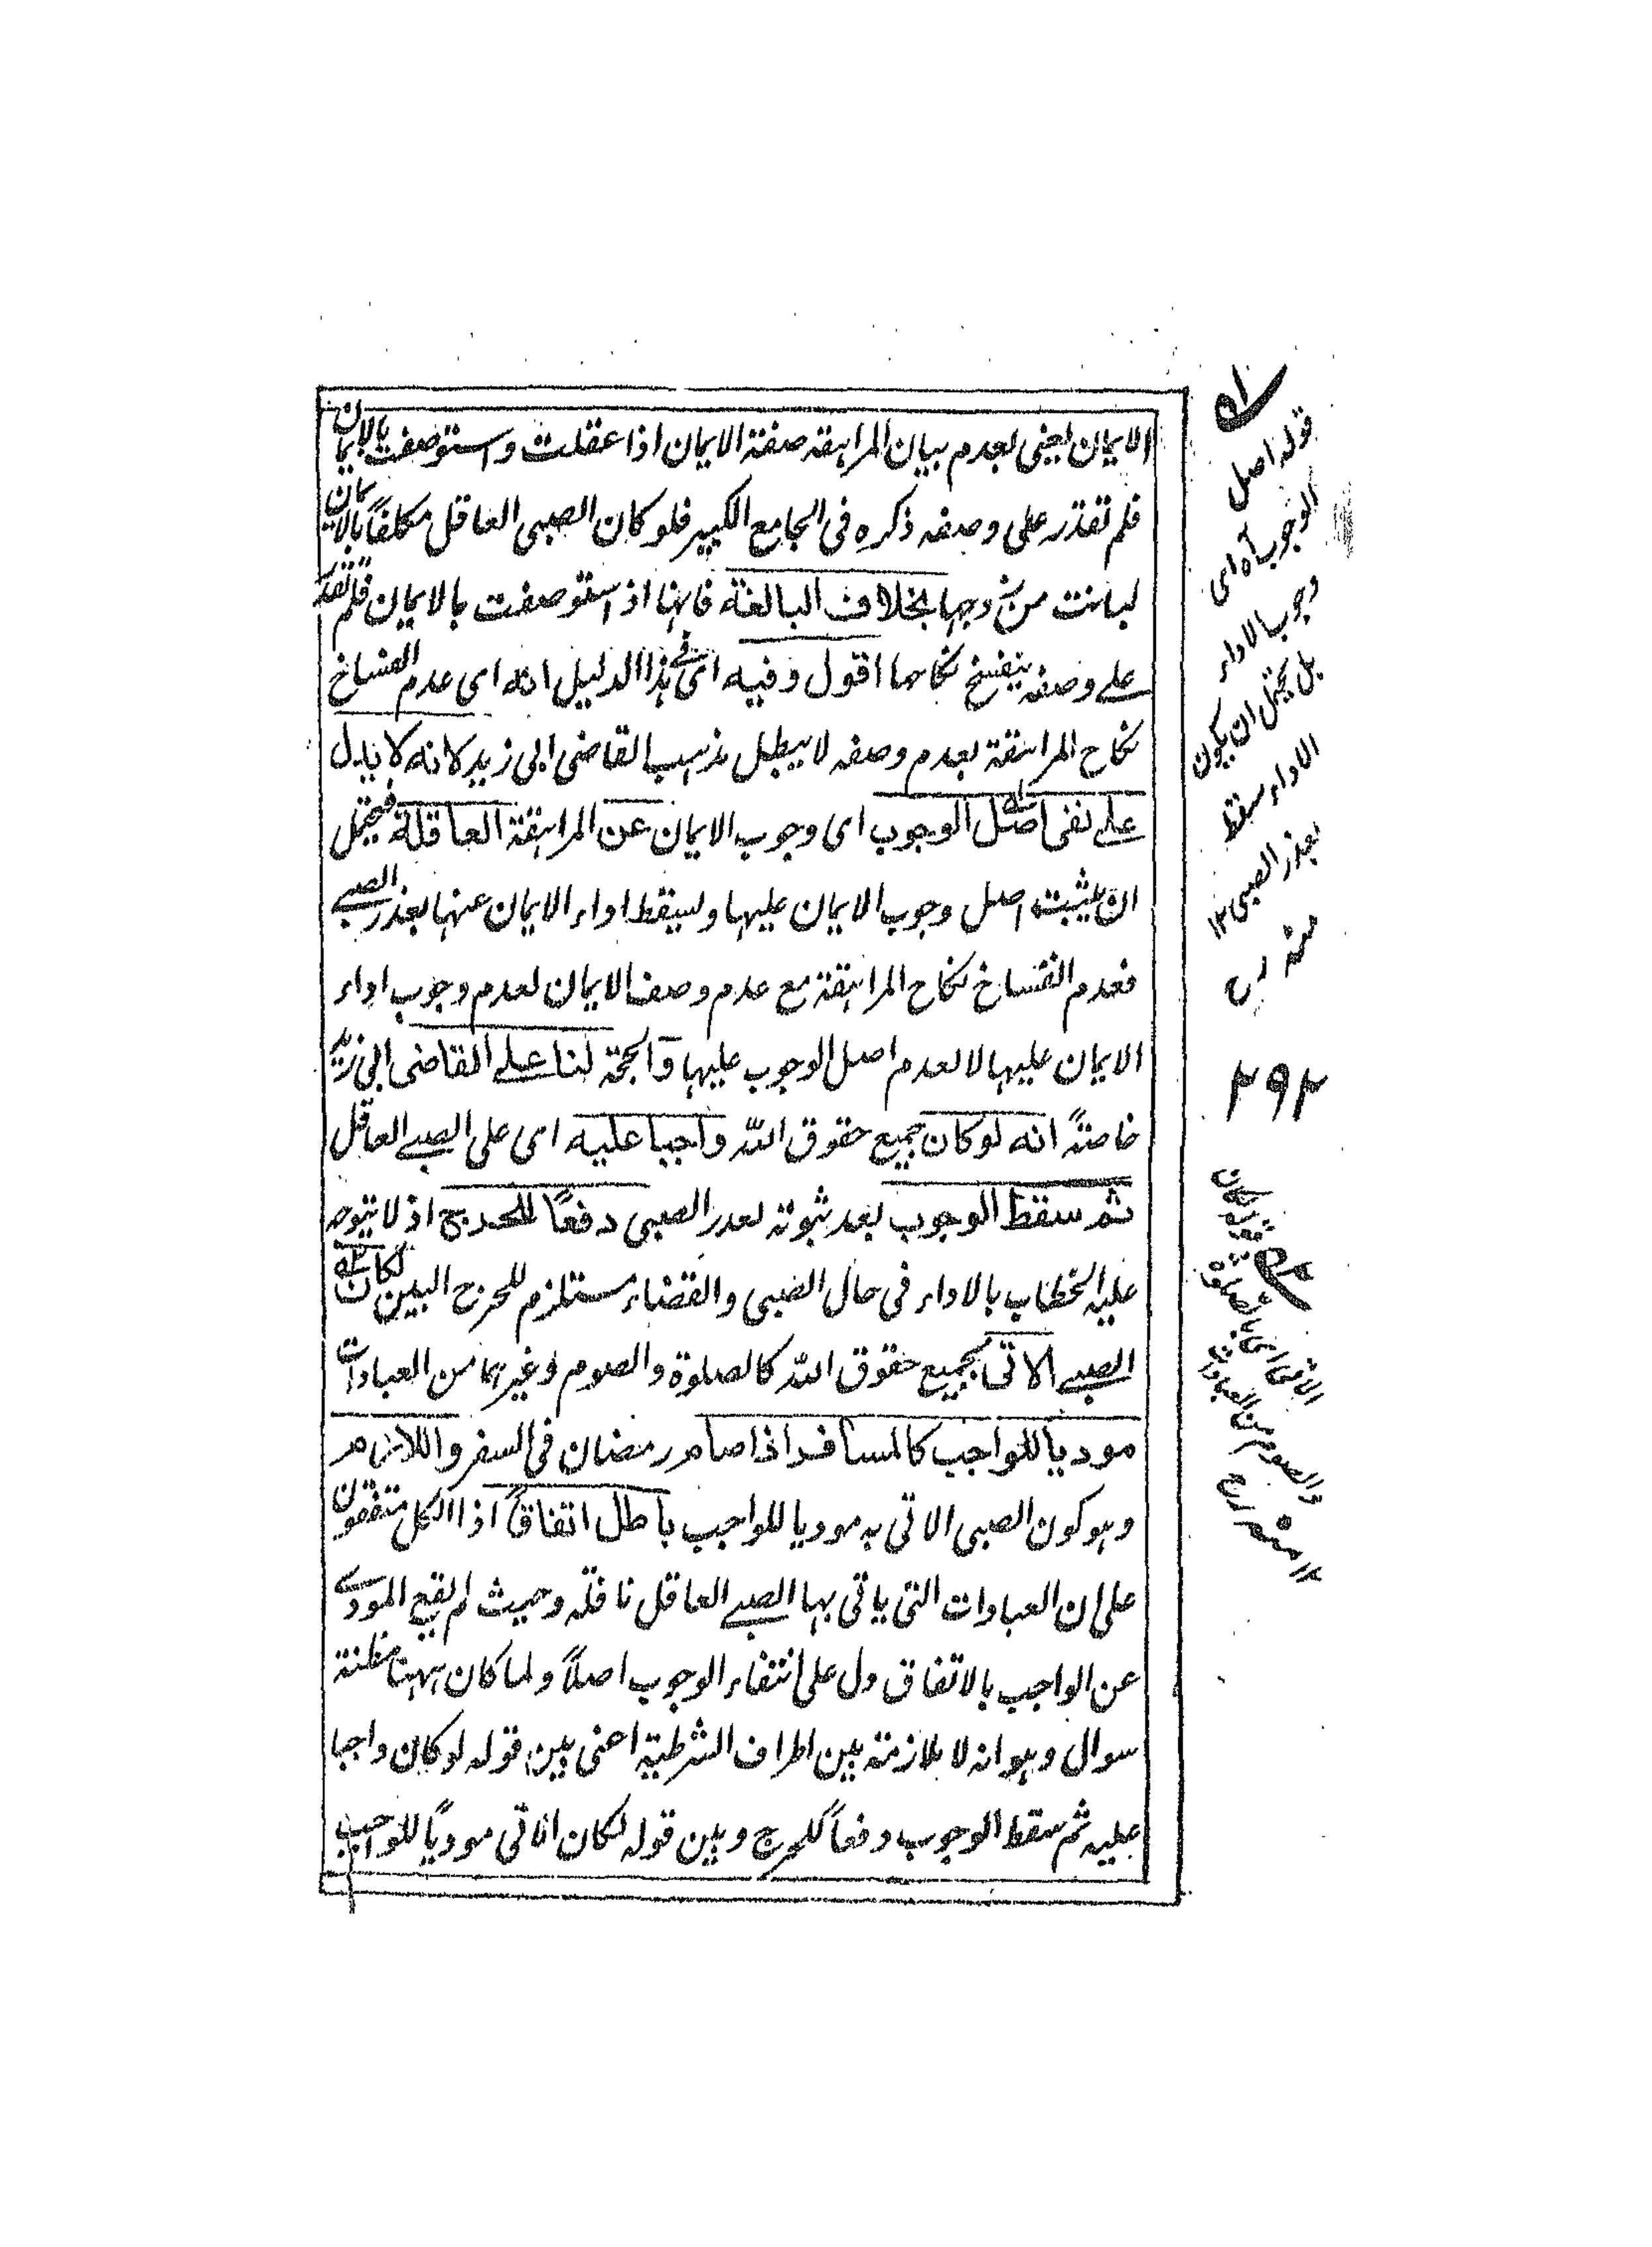 الايمان يعنى لعدم بيان المراهقة صفة الايمان اذا عقلت واستوصفت بالايمان
فلم تقدر على وصفه ذكره فى الجامع الكبير فلو كان الصبى العاقل مكلفاً بالايمان
لبانت من زوجها بخلاف البالغة فانها اذا ستوصفت بالايمان فلم تقدر
على وصفه ينفسخ نكاحها اقول وفيه اى فى هذا الدليل انه اى عدم انفساخ
نكاح المراهقة بعدم وصفه لا يبطل مذهب القاضى ابى زيد لانه لا يدل
على نفى اصل الوجوب اى وجوب الايمان عن المراهقة العاقلة فيحتمل
ان يثبت اصل وجوب الايمان عليها ويسقط اداء الايمان عنها بعذر الصبے
فعدم انفساخ نكاح المراهقة مع عدم وصف الايمان لعدم وجوب اداء
الايمان عليها لا لعدم اصل الوجوب عليها والحجة لنا على القاضى ابى زيد
خاصةً انه لو كان جميع حقوق الله واجبا عليه اى على الصبے العاقل
ثم سقط الوجوب بعد ثبوته لعذر الصبى دفعًا للحرج اذ لا يتوجه
عليه الخطاب بالاداء فى حال الصبى والقضاء مستلزم للحرج البين لكان
الصبے الاتى بجميع حقوق الله كالصلوة والصوم وغيرهما من العبادات
موديا للواجب كالمسافر اذا صام رمضان فى السفر واللازم
وهو كون الصبى الاتى به موديا للواجب باطل اتفاقاً اذا الكل متفقون
على ان العبادات التى ياتى بها الصبے العاقل نافلة وحيث لم يقع المودے
عن الواجب بالاتفاق دل على انتفاء الوجوب اصلاً ولما كان ههنا مظنة
سوال وهو انه لا ملازمة بين اطراف الشرطية اعنى بين قوله لو كان واجبا
عليه ثم سقط الوجوب دفعاً للحرج وبين قوله لكان الاتى مودياً للواجب
قوله اصل
الوجوب آه اى
وجوب الاداء
بل يحتمل ان يكون
الاداء سقط
بعذر الصبى ١٢
منه رح
٢٩٢
قوله لكان
الاتى اى بالصلوة
والصوم من العبادات
١٢ منه رح